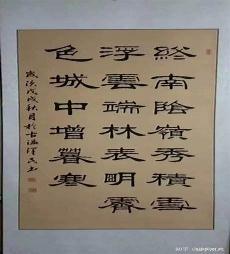 終南陰嶺秀積雪
浮雲端林表明霽
色城中增暮寒
歲次戊戌秋月於古